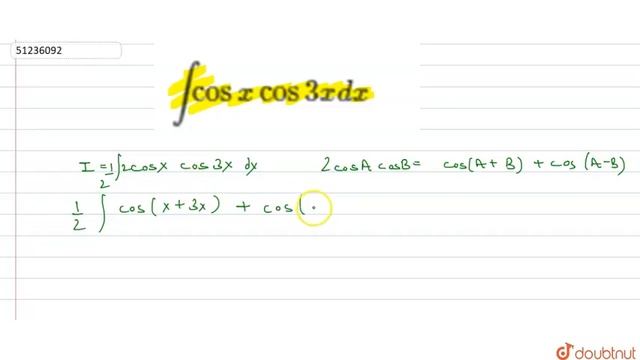 51236092
∫cos x cos 3x dx
I = 1/2 ∫2cosx cos3x dx 2cosA cosB = cos(A + B) + cos (A-B)
1/2 ∫ cos(x+3x) + cos(
doubtnut